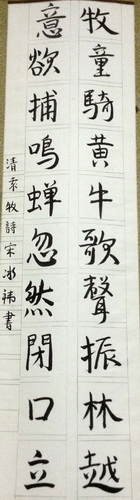 牧童騎黄牛歌聲振林越
意欲捕鳴蟬忽然閉口立
清袁牧詩宋冰祎書